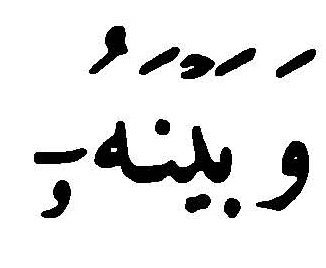 وَبَيْنَهُۥ